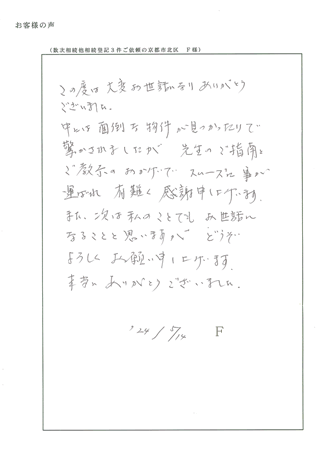 お客様の声
(数次相続他相続登記3件ご依頼の京都市北区 F様)
この度は大変お世話になりありがとう
ございました。
中には面倒な物件が見つかったりで
驚かされましたが 先生のご指南と
ご教示のおかげで スムーズに事が
運ばれ 有難く 感謝申し上げます。
また、次は私のことでも お世話に
なることと思いますが どうぞ
よろしく お願い申し上げます。
本当に ありがとう ございました。
'24 / 5/14 F